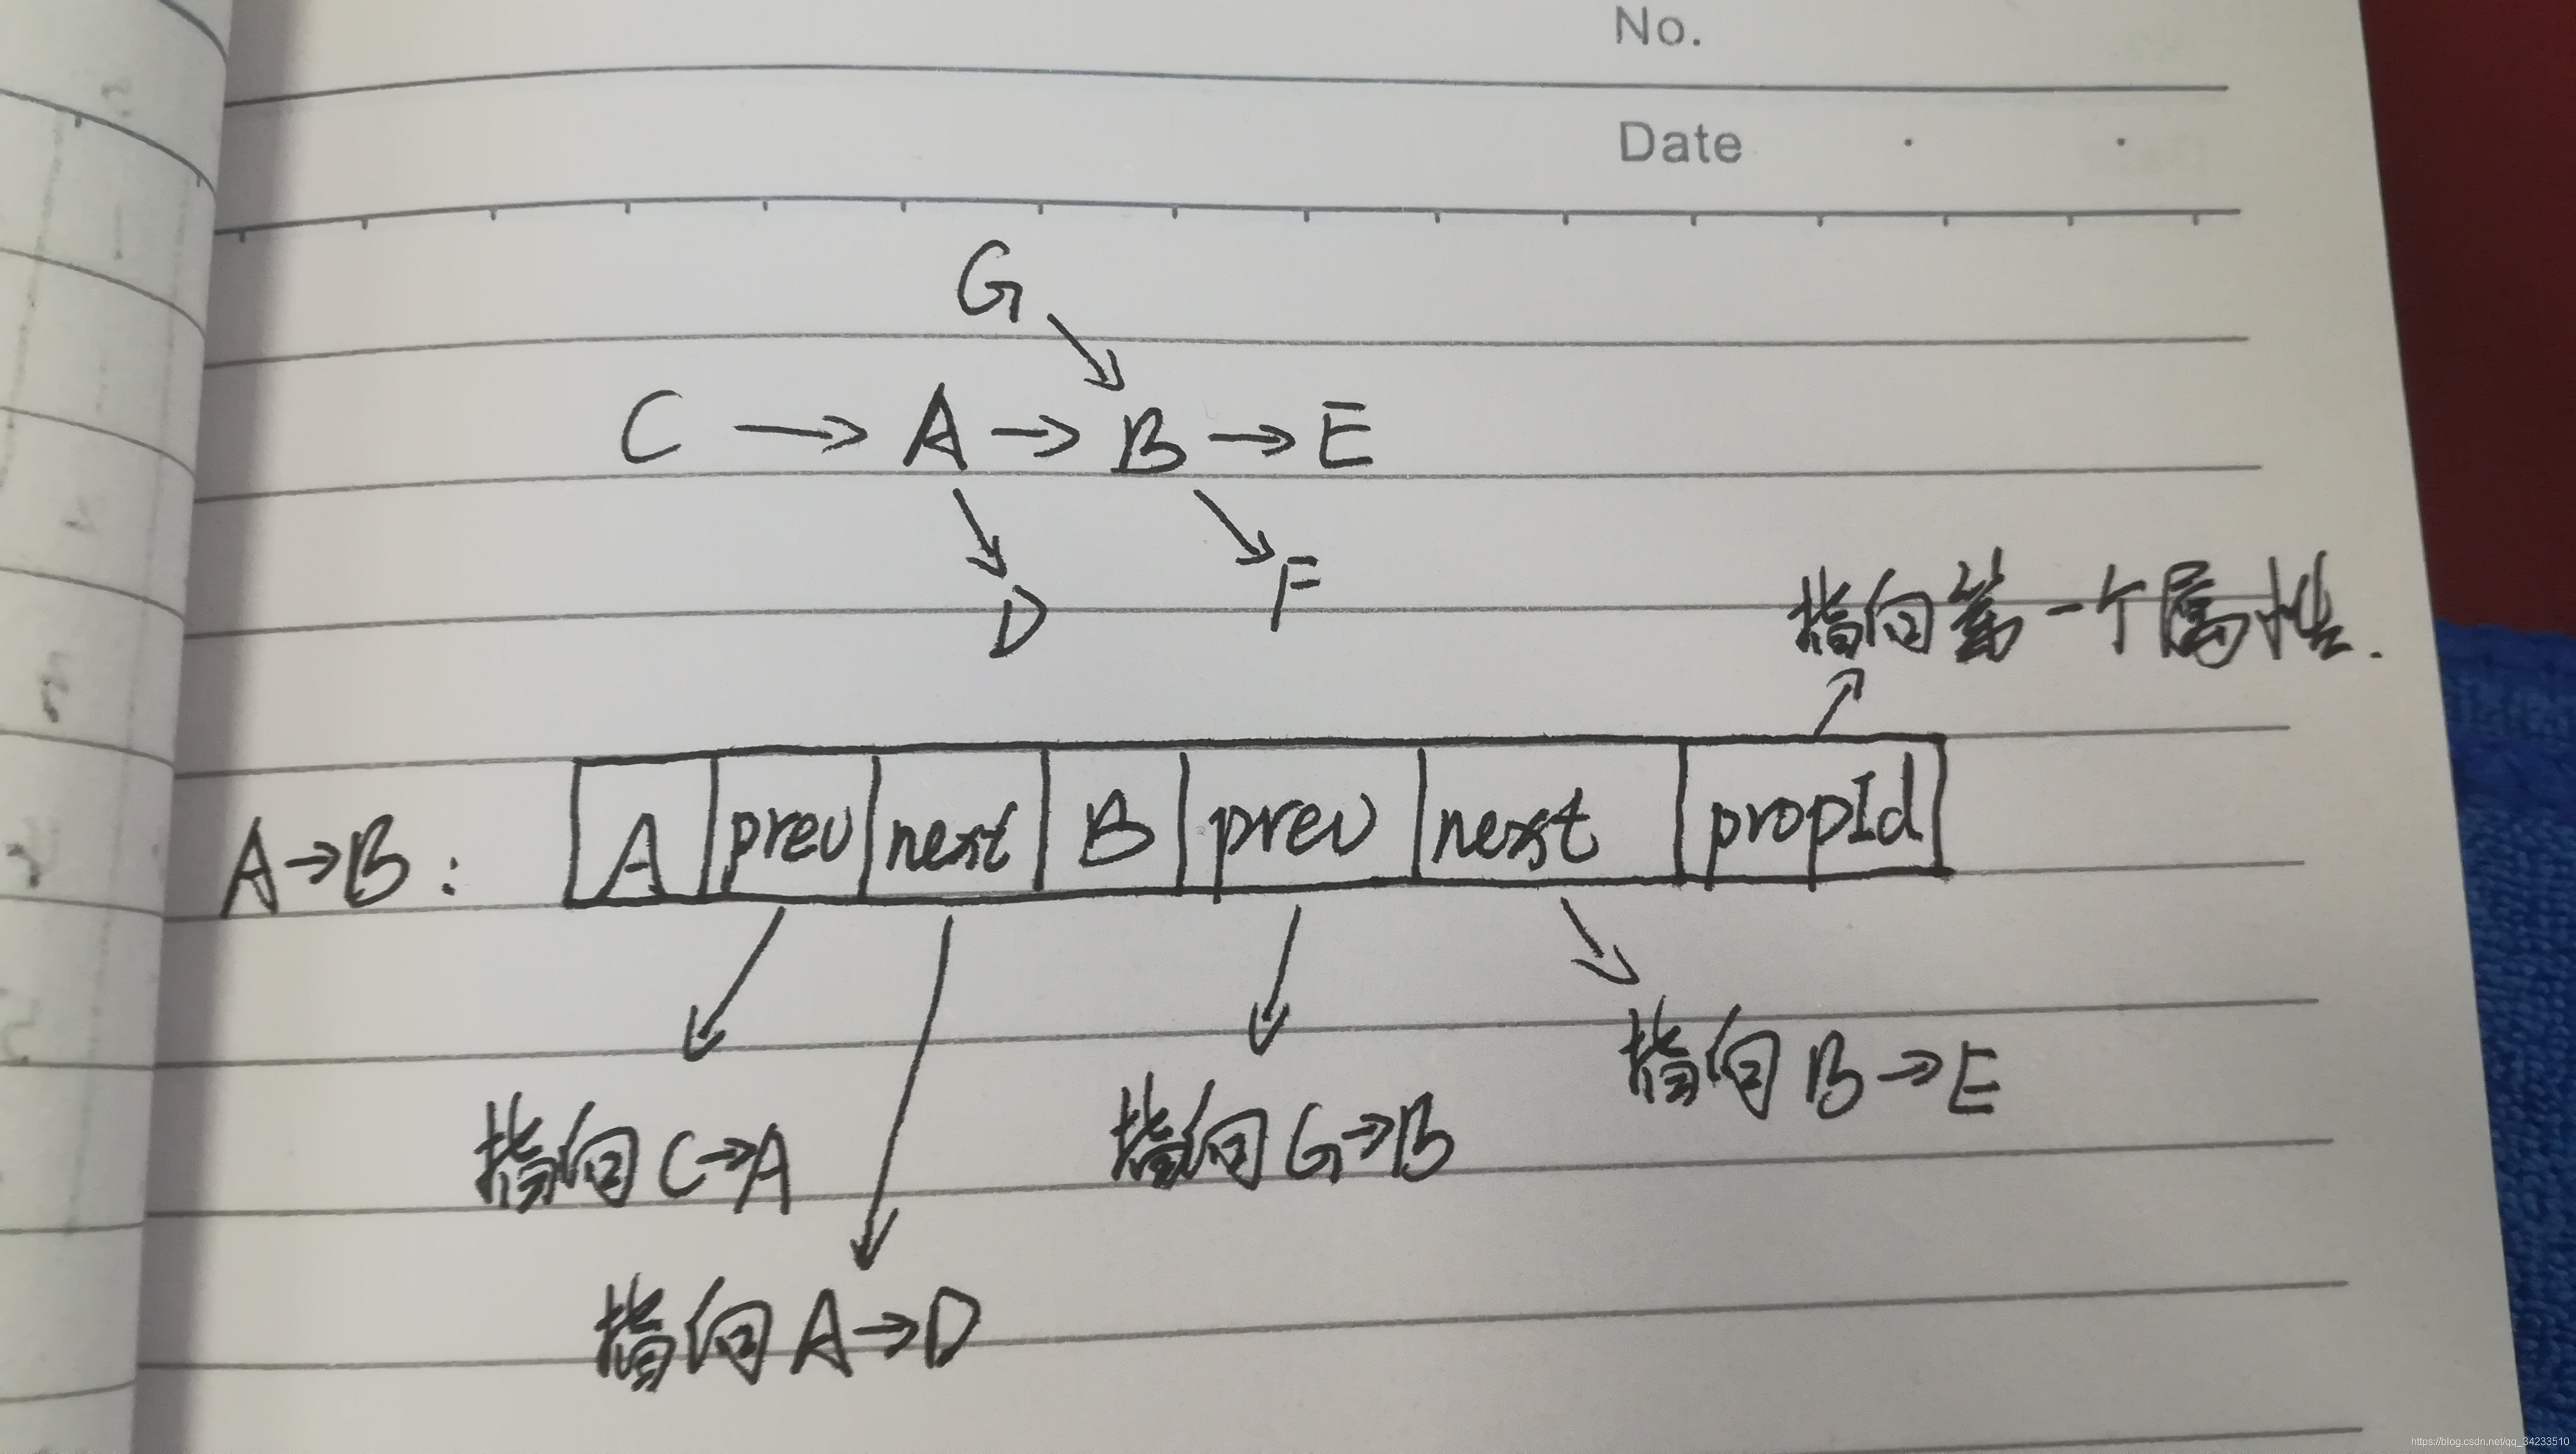 No.
Date
G
C → A → B → E
D F
指向第一个属性.
A→B: A prev next B prev next propId
指向 B→E
指向 C→A 指向 G→B
指向 A→D
https://blog.csdn.net/qq_34233510